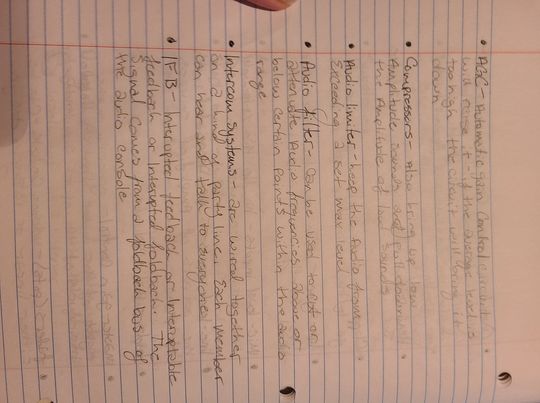 • AGC - Automatic gain Control circuit
will raise it - if the average level is
too high the circuit will bring it
down
• Compressors - Also bring up low
Amplitude sounds and pull down
the Amplitude of loud sounds
• Audio limiter - keep the audio from
Exceeding a set max level
• Audio filter - Can be used to cut or
attenuate Audio frequencies above or
below certain points within the audio
range
• Intercom Systems - are wired together
on a kind of party line. Each member
can hear and talk to everyone
• IFB - Interrupted feedback or Interruptable
feedback or Interrupted foldback. The
signal comes from a foldback bus of
the audio console